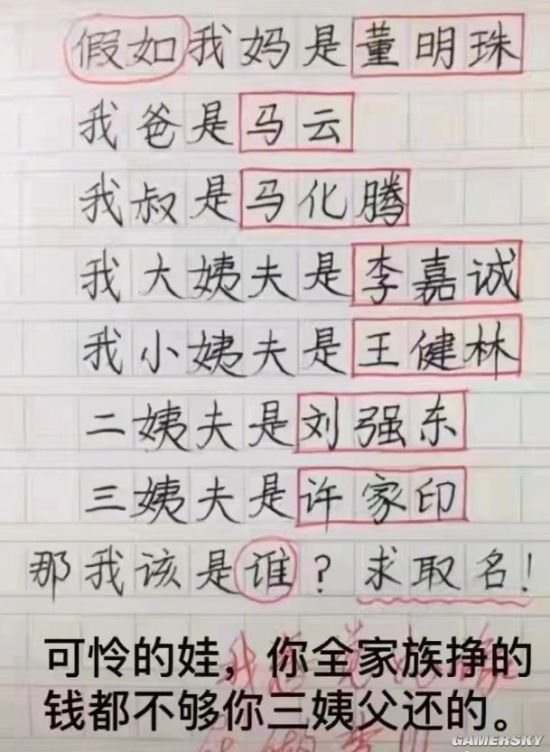 假如我妈是董明珠
我爸是马云
我叔是马化腾
我大姨夫是李嘉诚
我小姨夫是王健林
二姨夫是刘强东
三姨夫是许家印
那我该是谁？求取名！
可怜的娃，你全家族挣的
钱都不够你三姨父还的。
GAMERSKY